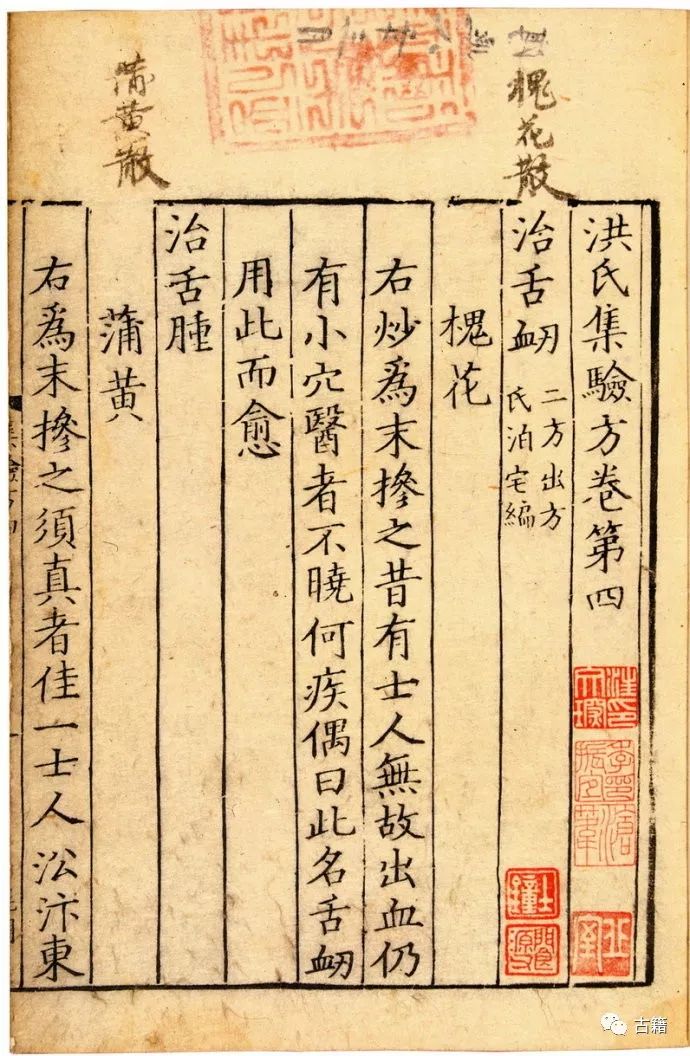 槐花散
蒲黄散
洪氏集驗方卷第四
治舌衂 二方出方
氏泊宅編
槐花
右炒爲末摻之昔有士人無故出血仍
有小穴醫者不曉何疾偶曰此名舌衂
用此而愈
治舌腫
蒲黄
右爲末摻之須真者佳一士人沿汴東
古籍